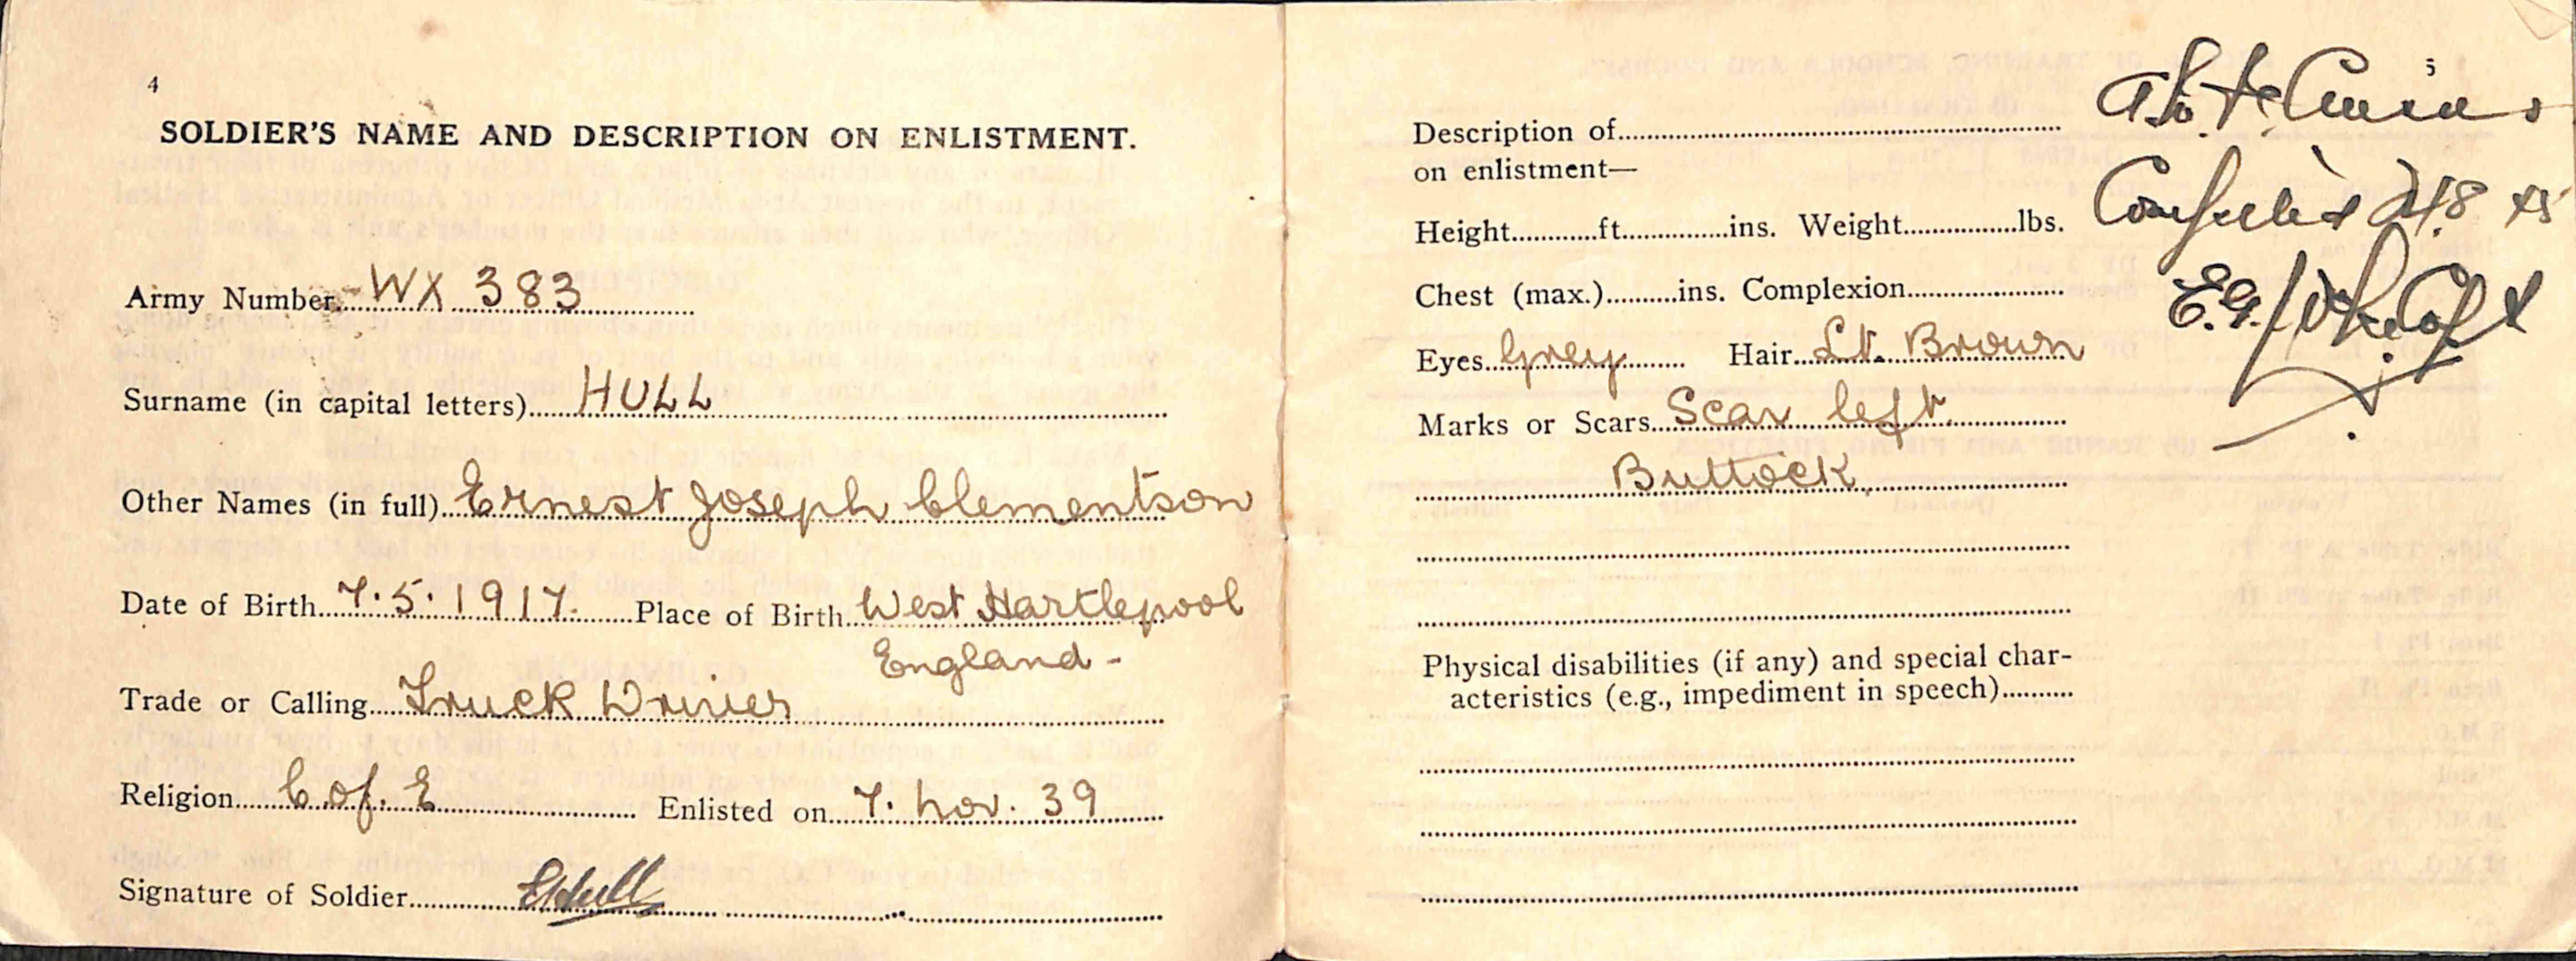 4
SOLDIER'S NAME AND DESCRIPTION ON ENLISTMENT.
Army Number WX 383
Surname (in capital letters) HULL
Other Names (in full) Ernest Joseph Clementson
Date of Birth 7.5.1917. Place of Birth West Hartlepool
England -
Trade or Calling Truck Driver
Religion C. of. E Enlisted on 7. Nov. 39
Signature of Soldier EHull
5
Description of
on enlistment—
Height ft ins. Weight lbs.
Chest (max.) ins. Complexion
Eyes Grey Hair Lt. Brown
Marks or Scars Scar left
Buttock
Physical disabilities (if any) and special char-
acteristics (e.g., impediment in speech)